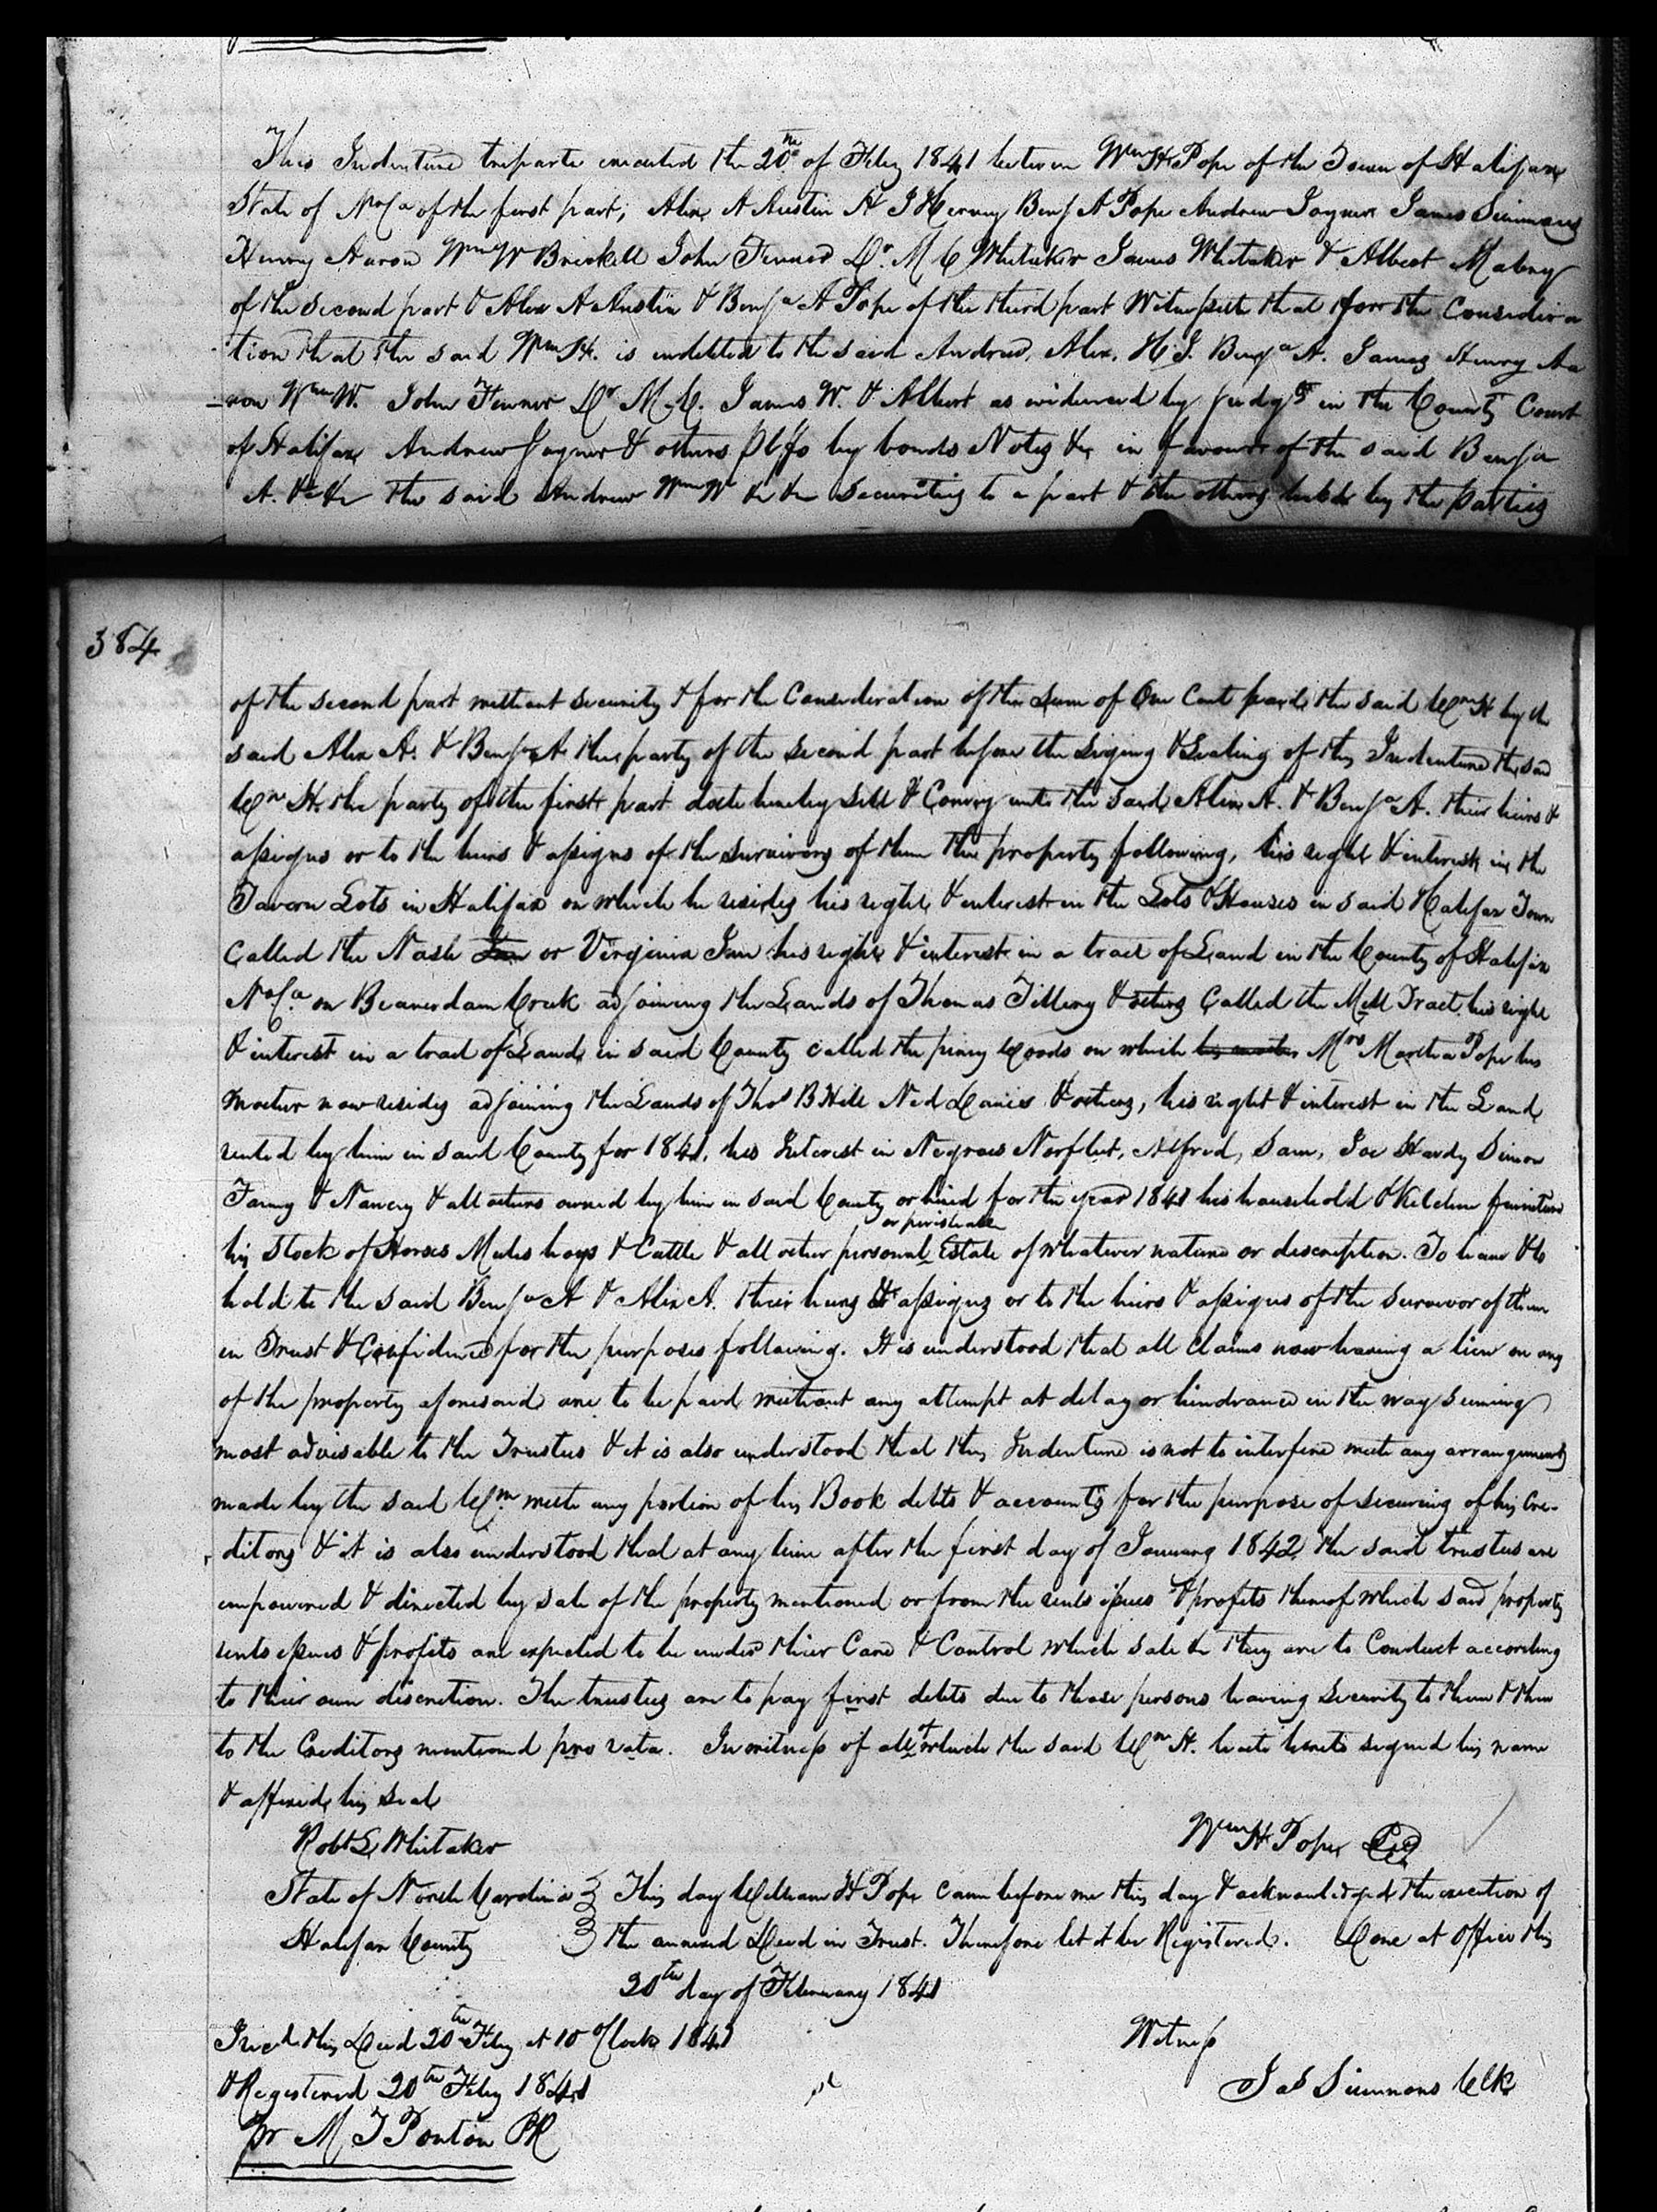 This Indenture triparte executed the 20th of Feby 1841 between Wm H Pope of the Town of Halifax
State of No Ca of the first part, Alex A Austin H J Hervey Benj A Pope Andrew Joyner James Simmons
Henry Aaron Wm W Brickell John Fenner Dr. M C Whitaker James Whitaker & Albert Mabry
of the second part & Alex A Austin & Benja A Pope of the third part Witnesseth that for the Considera
tion that the said Wm H. is indebted to the said Andrew, Alex, H J. Benja A. James Henry Aa
ron Wm W. John Fenner Dr M. C. James W. & Albert as evidenced by judgts in the County Court
of Halifax Andrew Joyner & others Pltfs by bonds Notes &c in favour of the said Benja
A. &c &c the said Andrew Wm W &c &c Securities to a part & the others held by the parties
384
of the second part without security & for the Consideration of the Sum of One Cent paid the said Wm H by the
said Alex A. & Benja A the party of the second part before the Signing & Sealing of this Indenture the said
Wm H. the party of the first part doth hereby Sell & Convey unto the said Alex A. & Benja A. their heirs &
assigns or to the heirs & assigns of the survivors of them the property following, his right & interest in the
Tavern Lots in Halifax on which he resides his right & interest in the Lots & Houses in said Halifax Town
Called the Nash Inn or Virginia Inn his right & interest in a tract of Land in the County of Halifax
No Ca. on Beaverdam Creek adjoining the Lands of Thomas Tillery & others Called the Mill Tract, his right
& interest in a tract of Land in said County called the piney Woods on which his mother Mrs Martha Pope his
mother now resides adjoining the Lands of Thos B Hill Ned Daniel & others, his right & interest in the Land
rented by him in said County for 1841, his Interest in Negroes Norfleet, Alfred, Sam, Joe Hardy Simon
Fanny & Nancy & all others owned by him in said County or hired for the year 1841 his household & Kitchen furniture
or perishable
his Stock of Horses Mules hogs & Cattle & all other personal Estate of whatever nature or description. To have & to
hold to the said Benja A & Alex A. their heirs & assigns or to the heirs & assigns of the survivor of them
in Trust & Confidence for the purposes following. It is understood that all Claims now having a lien on any
of the property aforesaid are to be paid without any attempt at delay or hindrance in the way seeming
most advisable to the Trustees & it is also understood that this Indenture is not to interfere with any arrangements
made by the said Wm with any portion of his Book debts & accounts for the purpose of securing of his Cre-
ditors & it is also understood that at any time after the first day of January 1842 the said trustees are
empowered & directed by sale of the property mentioned or from the rents issues & profits thereof which said property
rents issues & profits are expected to be under their Care & Control which sale &c they are to Conduct according
to their own discretion. The trustees are to pay first debts due to those persons having Security to them & then
to the Creditors mentioned pro rata. In witness of all of which the said Wm H. hath hereto signed his name
& affixed his seal
Robt L Whitaker
Wm H Pope Seal
State of North Carolina } This day William H Pope came before me this day & acknowledged the execution of
Halifax County } the annexed Deed in Trust. Therefore let it be Registered. Done at Office this
20th day of February 1841
Recd this Deed 20th Feby at 10 oClock 1841
Witness
& Registered 20th Feby 1841
Jas Simmons Clk
pr M T Ponton PR